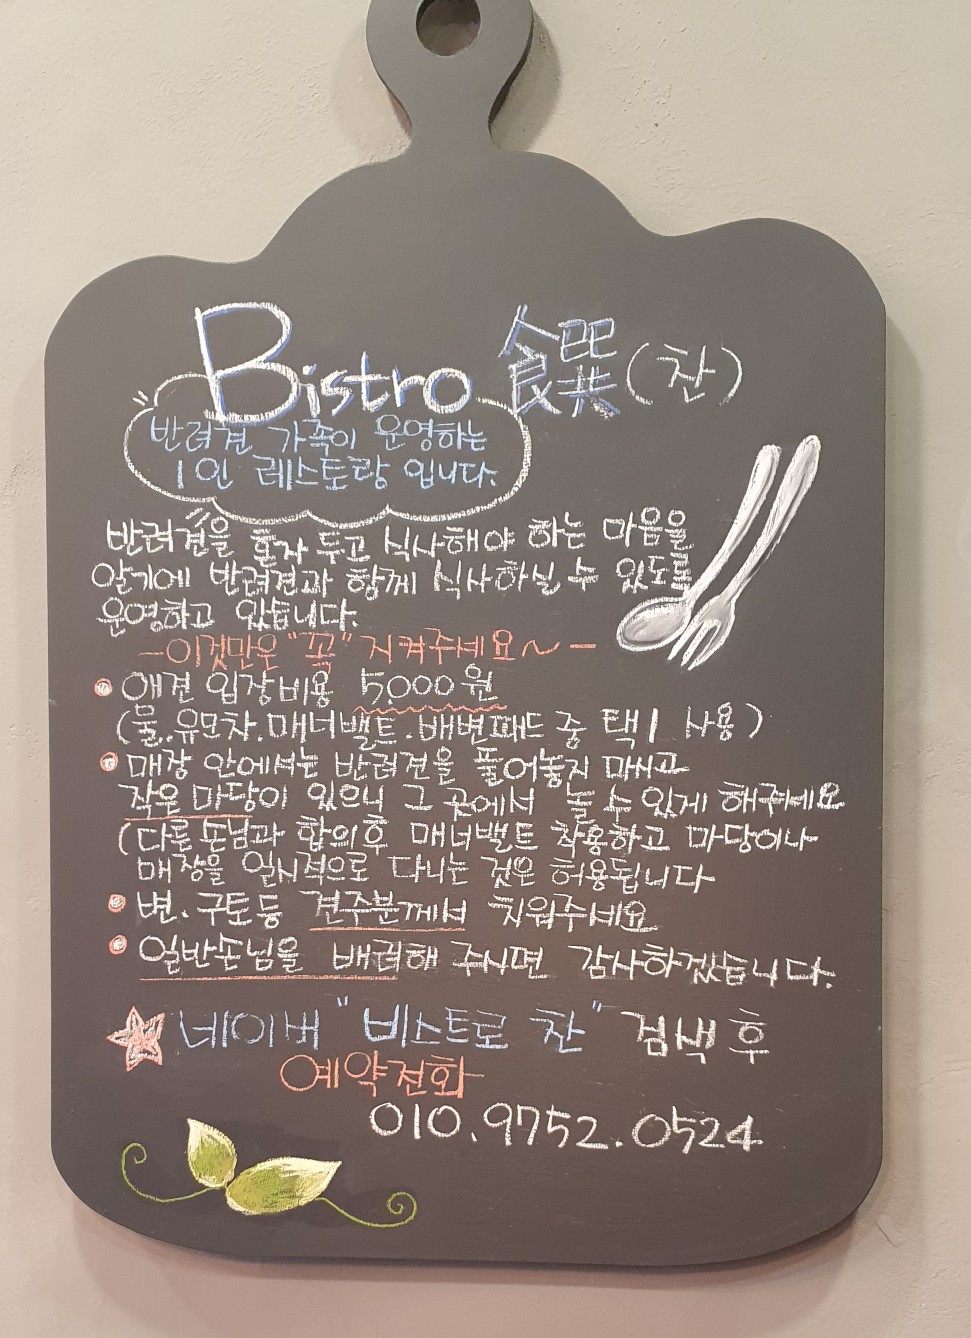 Bistro 饌(찬)
반려견 가족이 운영하는
1인 레스토랑 입니다.
반려견을 혼자 두고 식사해야 하는 마음을
알기에 반려견과 함께 식사하실 수 있도록
운영하고 있습니다.
-이것만은 "꼭" 지켜주세요~-
애견 입장비용 5.000원
(물.유모차.매너밸트.배변패드 중 택1 사용)
매장 안에서는 반려견을 풀어놓지 마시고
작은 마당이 있으니 그 곳에서 놀 수 있게 해주세요
(다른 손님과 합의후 매너밸트 착용하고 마당이나
매장을 일시적으로 다니는 것은 허용됩니다
변.구토등 견주분께서 치워주세요
일반손님을 배려해 주시면 감사하겠습니다.
네이버 "비스트로 찬" 검색 후
예약전화
010.9752.0524